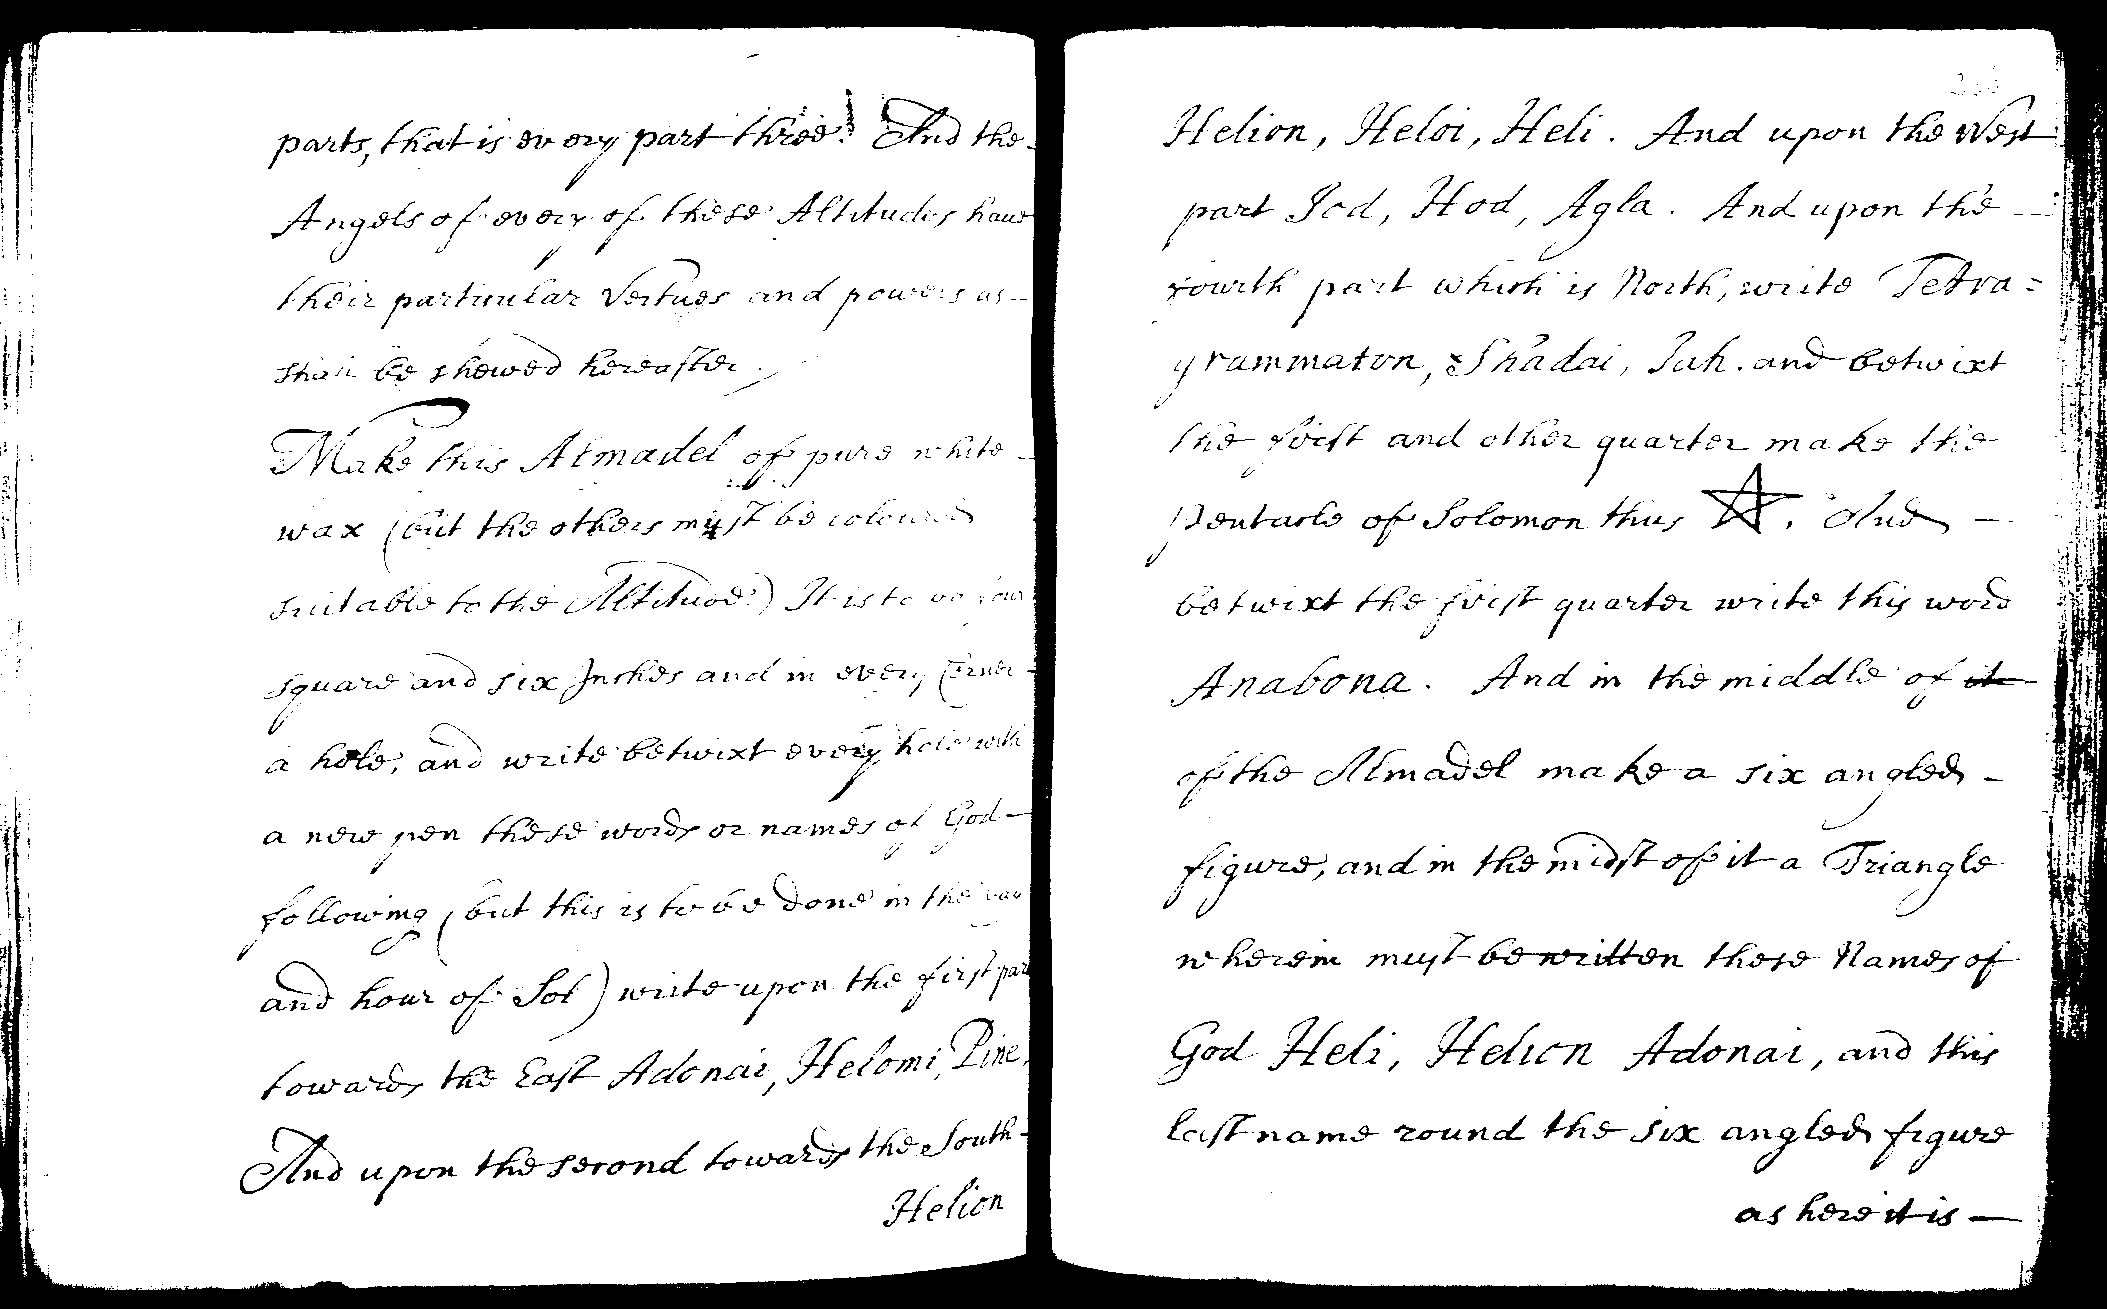 parts, that is every part three! And the
Angels of every of these Altitudes have
their particular Vertues and powers as
shall be shewed hereafter.
Make this Almadel of pure white
wax (but the others must be coloured
suitable to the Altitude.) It is to be four
square and six Inches and in every Corner
a hole, and write betwixt every hole with
a new pen these words or names of God
following (but this is to be done in the day
and hour of Sol) write upon the first part
towards the East Adonai, Helomi, Pine.
And upon the second towards the South
Helion
Helion, Heloi, Heli. And upon the West
part Jod, Hod, Agla. And upon the
fourth part which is North, write Tetra=
grammaton, Shadai, Jah. and betwixt
the first and other quarter make the
Pentacle of Solomon thus . And
betwixt the first quarter write this word
Anabona. And in the middle of it
of the Almadel make a six angled
figure, and in the midst of it a Triangle
wherein must be written these Names of
God Heli, Helion Adonai, and this
last name round the six angled figure
as here it is